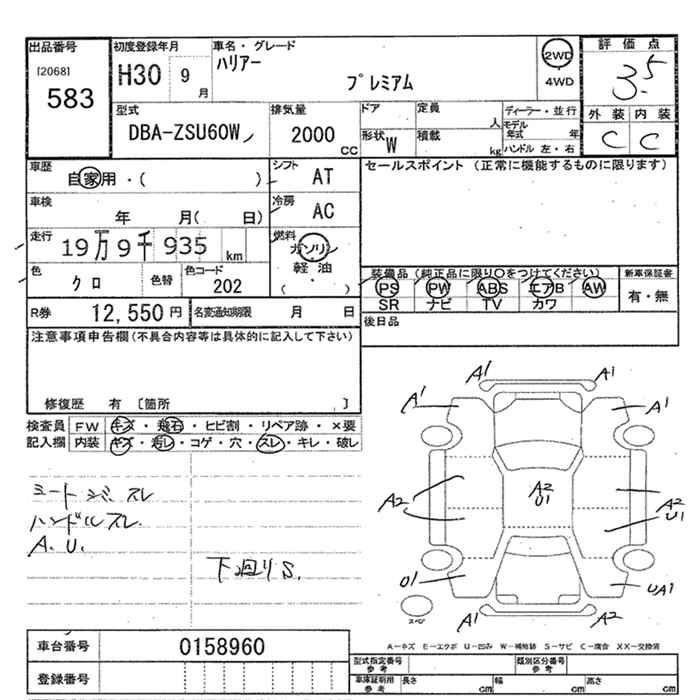 出品番号
[2068]
583
初度登録年月
H30 9 月
車名・グレード
ハリアー
プレミアム
2WD
4WD
評価点
3.5
外装 内装
C C
型式
DBA-ZSU60W
排気量
2000
CC
ドア
定員
人
形状 W
積載
kg
ディーラー・並行
モデル年式 年
ハンドル 左・右
車歴
自家用・( )
シフト AT
セールスポイント (正常に機能するものに限ります)
車検
年 月( 日)
冷房 AC
走行
19万9千935 km
燃料
ガソリン
軽油
( ・ )
色
クロ
色替
色コード
202
装備品(純正品に限り○をつけてください)
PS PW ABS エアB AW
SR ナビ TV カワ
新車保証書
有・無
R券 12,550円
名変通知期限 月 日
後日品
注意事項申告欄(不具合内容等は具体的に記入して下さい)
修復歴 有 [箇所 ]
検査員記入欄
FW キズ・飛石・ヒビ割・リペア跡・×要
内装 キズ・汚レ・コゲ・穴・スレ・キレ・破レ
シートシワ、スレ
ハンドルスレ
A.U.
下廻りS.
A1 A1
A1 A1
A2
A2
U1
A2
U1
U1
UA1
A1 A2
スペア
A−キズ E−エクボ U−凹み W−補修跡 S−サビ C−腐合 XX−交換済
車台番号 0158960
登録番号
型式指定番号
参考
類別区分番号
参考
車庫証明用
参考
長さ cm
幅 cm
高さ cm